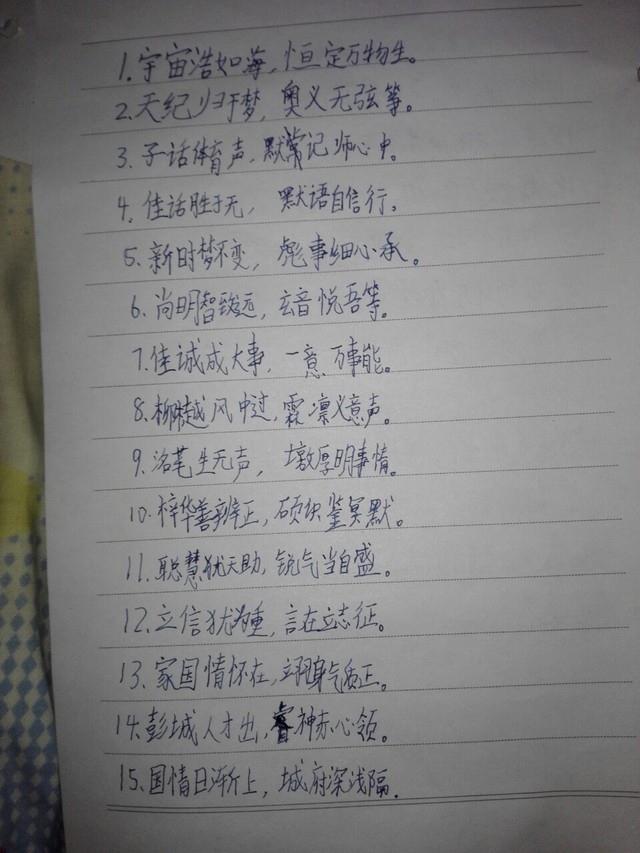 1.宇宙浩如海,恒定万物生。
2.天纪归于梦,奥义无弦等。
3.子话体育声,默常记师心中。
4.佳话胜于无,默语自信行。
5.新时梦不变,彪事细心承。
6.尚明智致远,玄音悦吾等。
7.佳诚成大事,一意万事能。
8.柳樾风中过,霖凛义意声。
9.洛笔生无声,墩厚明事情。
10.梓华善辨正,硕秋鉴冥默。
11.聪慧犹天助,锐气当自盛。
12.立信犹,言在立志征。
13.家国情怀在,翊身气质正。
14.彭城人才出,睿神赤心领。
15.国情日渐上,城府深浅隔。